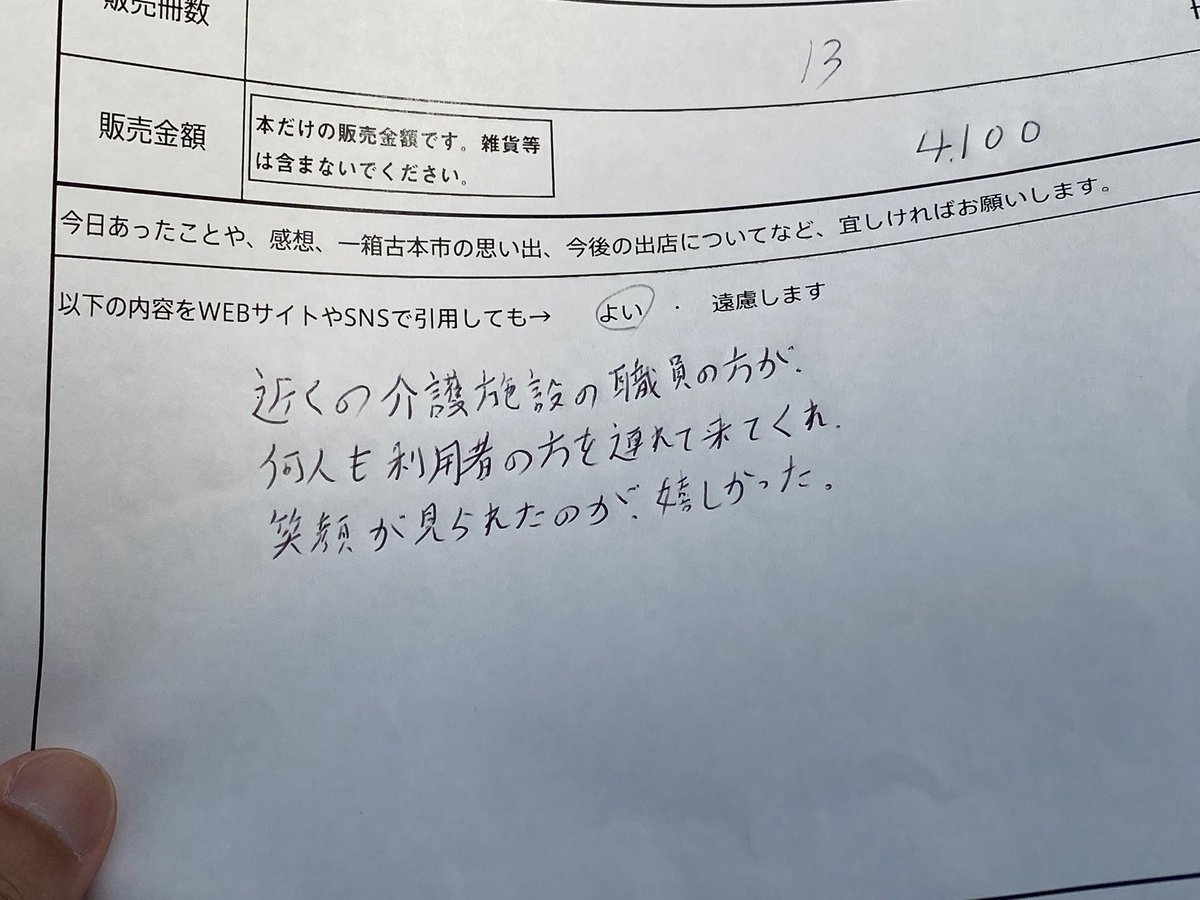 販売冊数
13
販売金額
本だけの販売金額です。雑貨等
は含まないでください。
4,100
今日あったことや、感想、一箱古本市の思い出、今後の出店についてなど、宜しければお願いします。
以下の内容をWEBサイトやSNSで引用しても→ よい ・ 遠慮します
近くの介護施設の職員の方が、
何人も利用者の方を連れて来てくれ、
笑顔が見られたのが、嬉しかった。